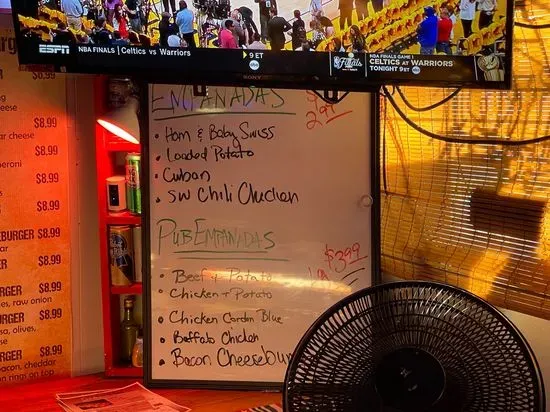 ESPN NBA FINALS | Celtics vs Warriors 9 ET abc
NBA FINALS GAME
Finals CELTICS AT WARRIORS
TONIGHT 9ET abc
SONY
EMPANADAS
2.99
• Ham & Baby Swiss
• Loaded Potato
• Cuban
• SW Chili Chicken
PUB EMPANADAS
$3.99
• Beef & Potato
• Chicken & Potato
• Chicken Cordon Blue
• Buffalo Chicken
• Bacon Cheesebur
$8.99
cheese
$8.99
$8.99
$8.99
$8.99
BURGER $8.99
$8.99
$8.99
raw onion
$8.99
olives,
RGER $8.99
bacon, cheddar
on rings on top